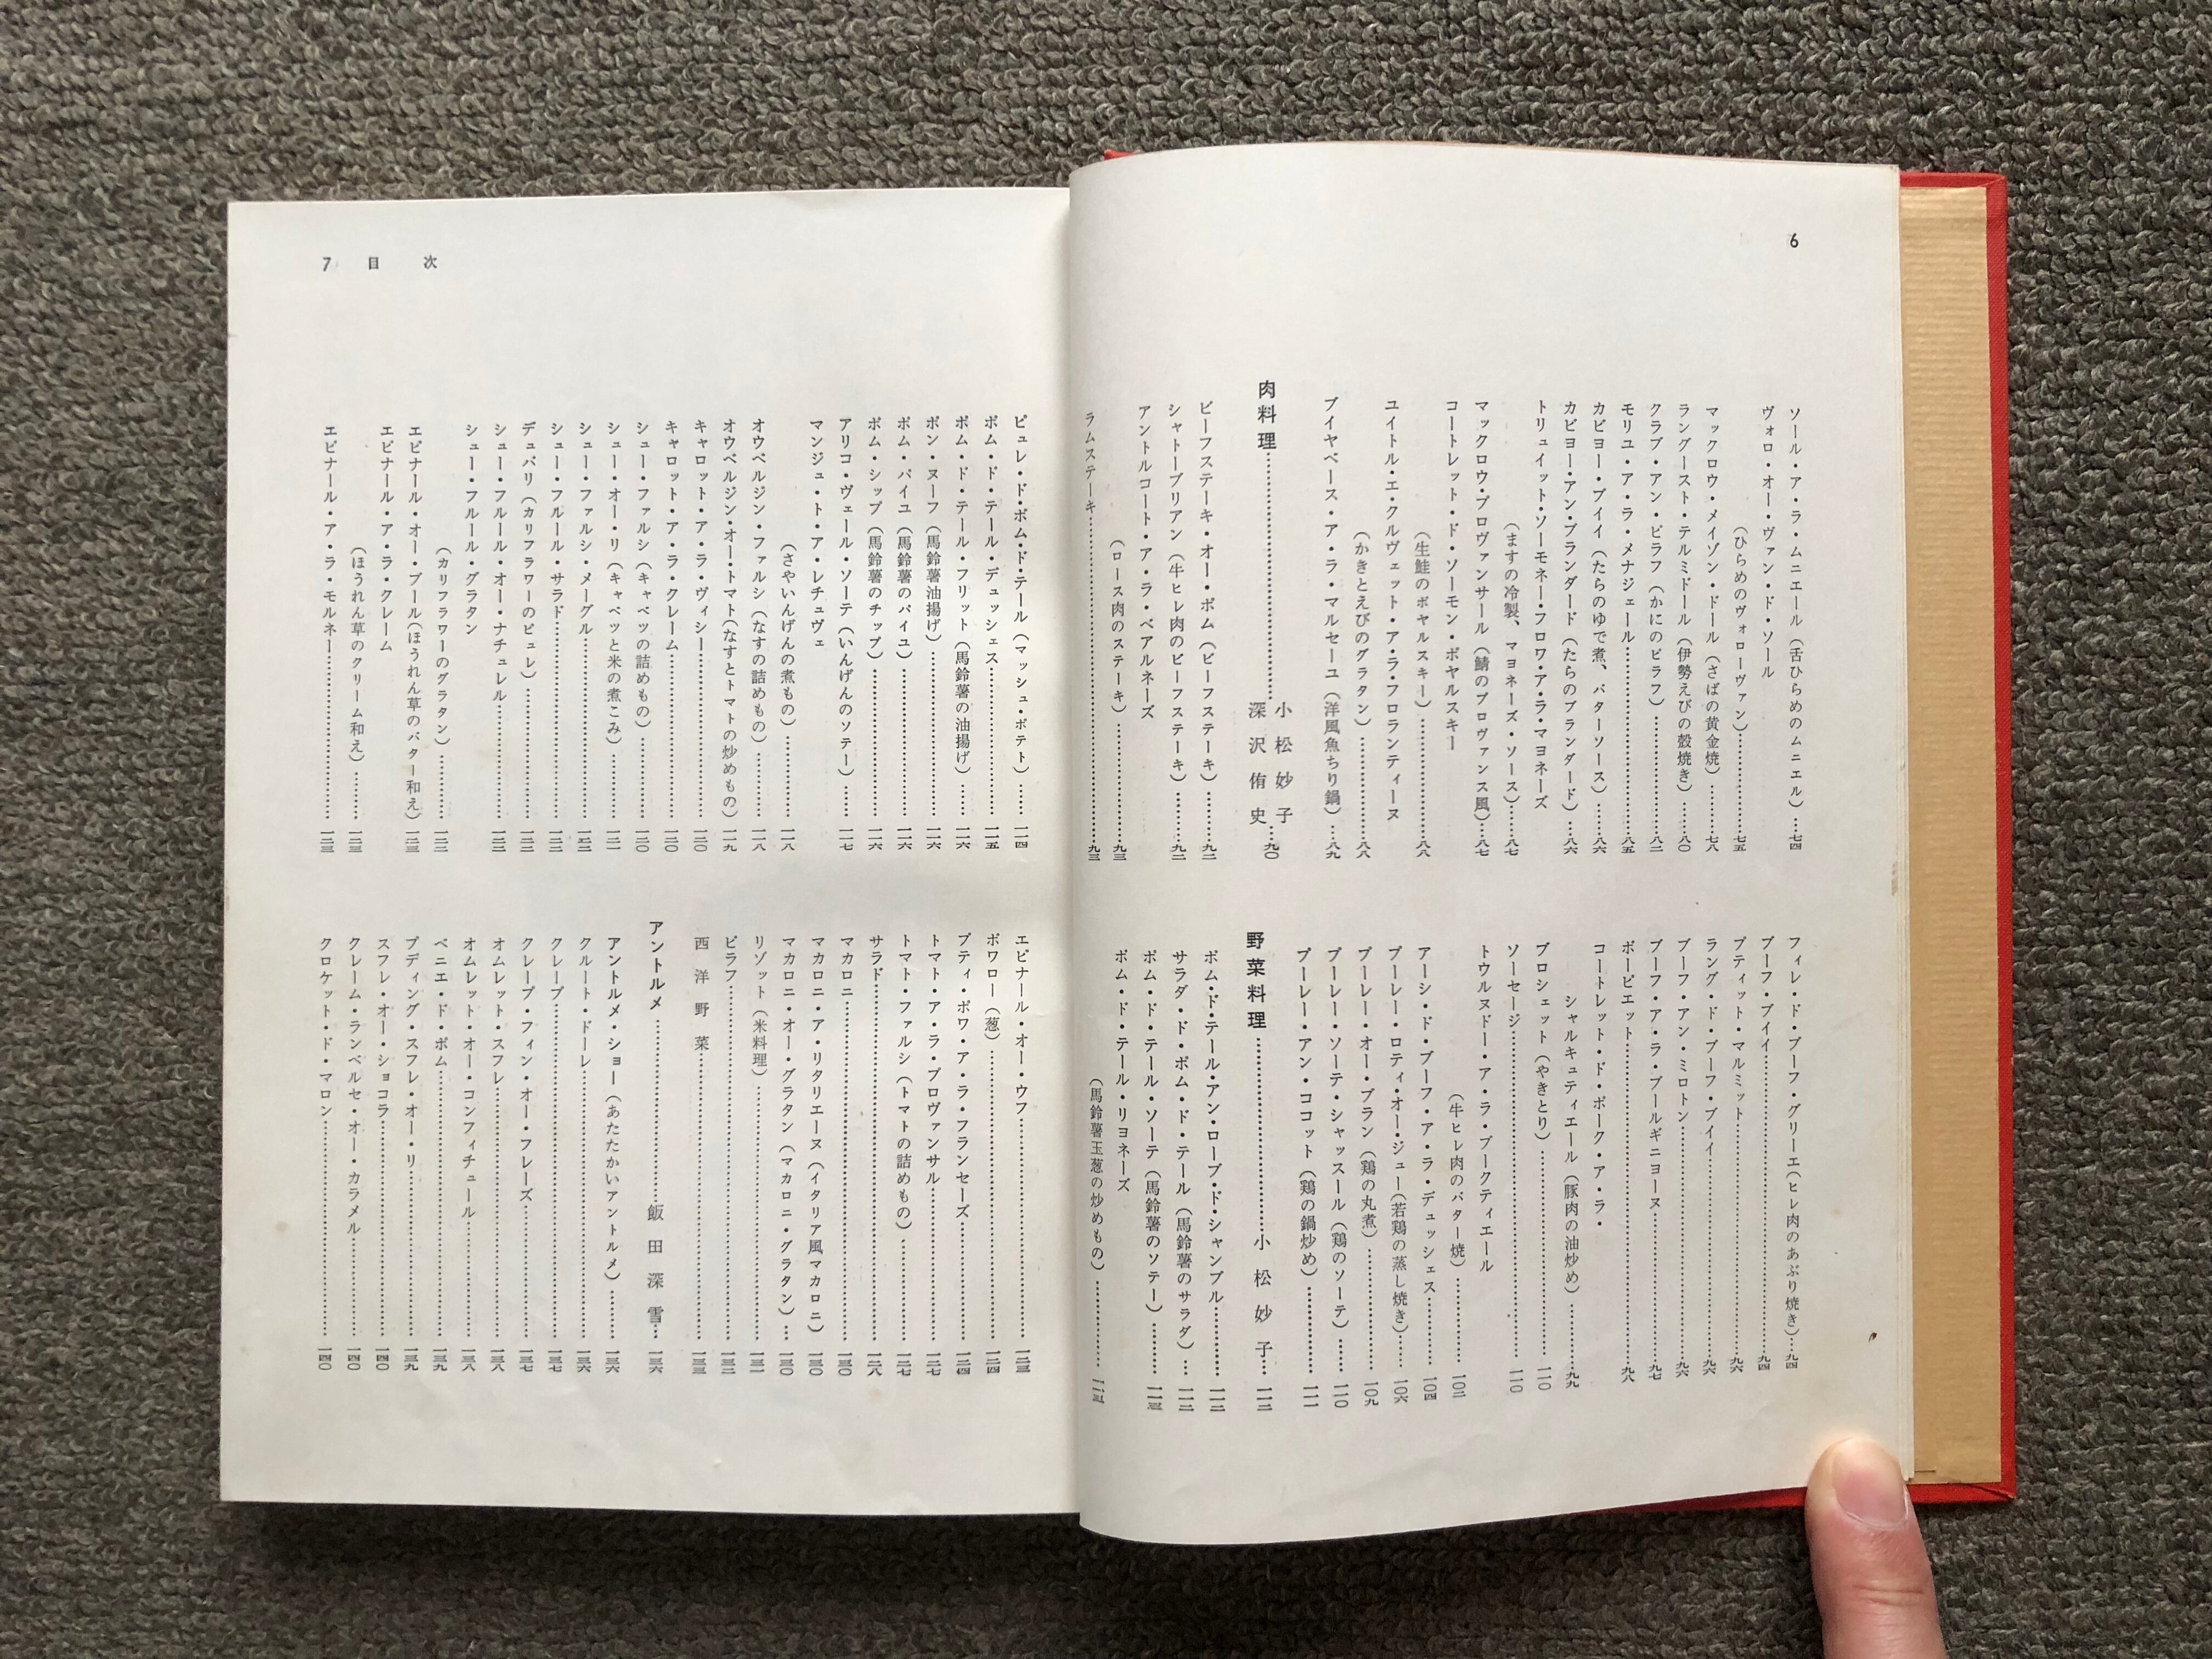 6
ソール・ア・ラ・ムニエール（舌ひらめのムニエル）…七四
ヴォロ・オー・ヴァン・ド・ソール
（ひらめのヴォローヴァン）…………七五
マックロウ・メイゾン・ドール（さばの黄金焼）………七八
ラングースト・テルミドール（伊勢えびの殻焼き）……八〇
クラブ・アン・ピラフ（かにのピラフ）…………八二
モリユ・ア・ラ・メナジェール…………………八五
カビヨー・ブイイ（たらのゆで煮、バターソース）……八六
カビヨー・アン・ブランダード（たらのブランダード）…八六
トリュイット・ソーモネー・フロワ・ア・ラ・マヨネーズ
（ますの冷製、マヨネーズ・ソース）……八七
マックロウ・プロヴァンサール（鯖のプロヴァンス風）…八七
コートレット・ド・ソーモン・ボヤルスキー
（生鮭のボヤルスキー）……………八八
ユイトル・エ・クルヴェット・ア・ラ・フロランティーヌ
（かきとえびのグラタン）……………八八
ブイヤベース・ア・ラ・マルセーユ（洋風魚ちり鍋）…八九
肉料理……………………………小松妙子
深沢侑史…九〇
ビーフステーキ・オー・ポム（ビーフステーキ）………九二
シャトーブリアン（牛ヒレ肉のビーフステーキ）………九二
アントルコート・ア・ラ・ベアルネーズ
（ロース肉のステーキ）……………九三
ラムステーキ……………………………………九三
フィレ・ド・ブーフ・グリーエ（ヒレ肉のあぶり焼き）…九四
ブーフ・ブイイ……………………………九四
プティット・マルミット……………………九六
ラング・ド・ブーフ・ブイイ…………………九六
ブーフ・アン・ミロトン……………………九六
ブーフ・ア・ラ・ブールギニヨーヌ……………九七
ポーピエット………………………………九八
コートレット・ド・ポーク・ア・ラ・
シャルキュティエール（豚肉の油炒め）………九九
ブロシェット（やきとり）……………………一一〇
ソーセージ…………………………………一一〇
トウルヌドー・ア・ラ・ブークティエール
（牛ヒレ肉のバター焼）…………一〇二
アーシ・ド・ブーフ・ア・ラ・デュッシェス………一〇四
プーレー・ロティ・オー・ジュー（若鶏の蒸し焼き）……一〇六
プーレー・オー・ブラン（鶏の丸煮）……………一〇九
プーレー・ソーテ・シャッスール（鶏のソーテ）……一一〇
プーレー・アン・ココット（鶏の鍋炒め）…………一一一
野菜料理……………………………小松妙子…一一二
ポム・ド・テール・アン・ローブ・ド・シャンブル………一一二
サラダ・ド・ポム・ド・テール（馬鈴薯のサラダ）…一一二
ポム・ド・テール・ソーテ（馬鈴薯のソテー）………一一三
ポム・ド・テール・リヨネーズ
（馬鈴薯玉葱の炒めもの）…………
7 目次
ピュレ・ド・ポム・ド・テール（マッシュ・ポテト）……一一四
ポム・ド・テール・デュッシェス………………一一五
ポム・ド・テール・フリット（馬鈴薯の油揚げ）……一一六
ポン・ヌーフ（馬鈴薯油揚げ）…………………一一六
ポム・パイユ（馬鈴薯のパイユ）………………一一六
ポム・シップ（馬鈴薯のチップ）………………一一六
アリコ・ヴェール・ソーテ（いんげんのソテー）……一一七
マンジュ・ト・ア・レチュヴェ
（さやいんげんの煮もの）…………一一八
オウベルジン・ファルシ（なすの詰めもの）………一一八
オウベルジン・オー・トマト（なすとトマトの炒めもの）一一九
キャロット・ア・ラ・ヴィシー…………………一二〇
キャロット・ア・ラ・クレーム…………………一二〇
シュー・ファルシ（キャベツの詰めもの）…………一二〇
シュー・オー・リ（キャベツと米の煮こみ）………一二一
シュー・ファルシ・メーグル……………………一二二
シュー・フルール・サラド………………………一二二
デュバリ（カリフラワーのピュレ）………………一二二
シュー・フルール・オー・ナチュレル……………一二二
シュー・フルール・グラタン
（カリフラワーのグラタン）…………一二二
エピナール・オー・ブール（ほうれん草のバター和え）一二三
エピナール・ア・ラ・クレーム
（ほうれん草のクリーム和え）………一二三
エピナール・ア・ラ・モルネー…………………一二三
エピナール・オー・ウフ…………………………一二三
ポワロー（葱）……………………………………一二四
プティ・ポワ・ア・ラ・フランセーズ……………一二四
トマト・ア・ラ・プロヴァンサル………………一二七
トマト・ファルシ（トマトの詰めもの）…………一二七
サラド………………………………………………一二八
マカロニ……………………………………………一三〇
マカロニ・ア・リタリエーヌ（イタリア風マカロニ）一三〇
マカロニ・オー・グラタン（マカロニ・グラタン）…一三〇
リゾット（米料理）………………………………一三一
ピラフ………………………………………………一三二
西洋野菜……………………………………………一三三
アントルメ…………………………飯田深雪…一三六
アントルメ・ショー（あたたかいアントルメ）………一三六
クルート・ドーレ…………………………………一三六
クレープ……………………………………………一三七
クレープ・フィン・オー・フレーズ………………一三七
オムレット・スフレ………………………………一三八
オムレット・オー・コンフィチュール……………一三八
ベニエ・ド・ポム…………………………………一三九
プディング・スフレ・オー・リ……………………一三九
スフレ・オー・ショコラ…………………………一四〇
クレーム・ランベルセ・オー・カラメル…………一四〇
クロケット・ド・マロン…………………………一四〇